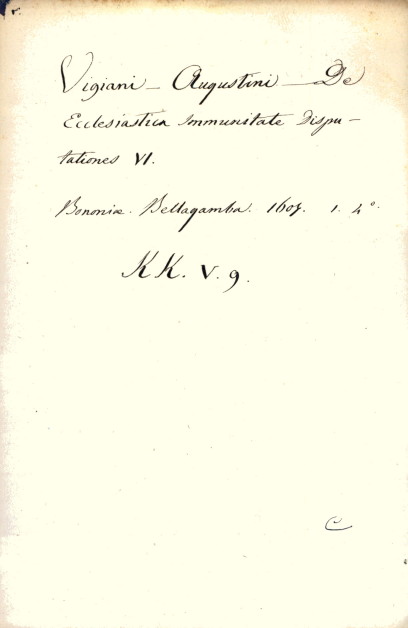 Vigiani - Augustini - De
Ecclesiastica Immunitate Dispu-
tationes VI.
Bononiæ. Bellagamba. 1607. 1. 4°.
KK. V. 9.
C